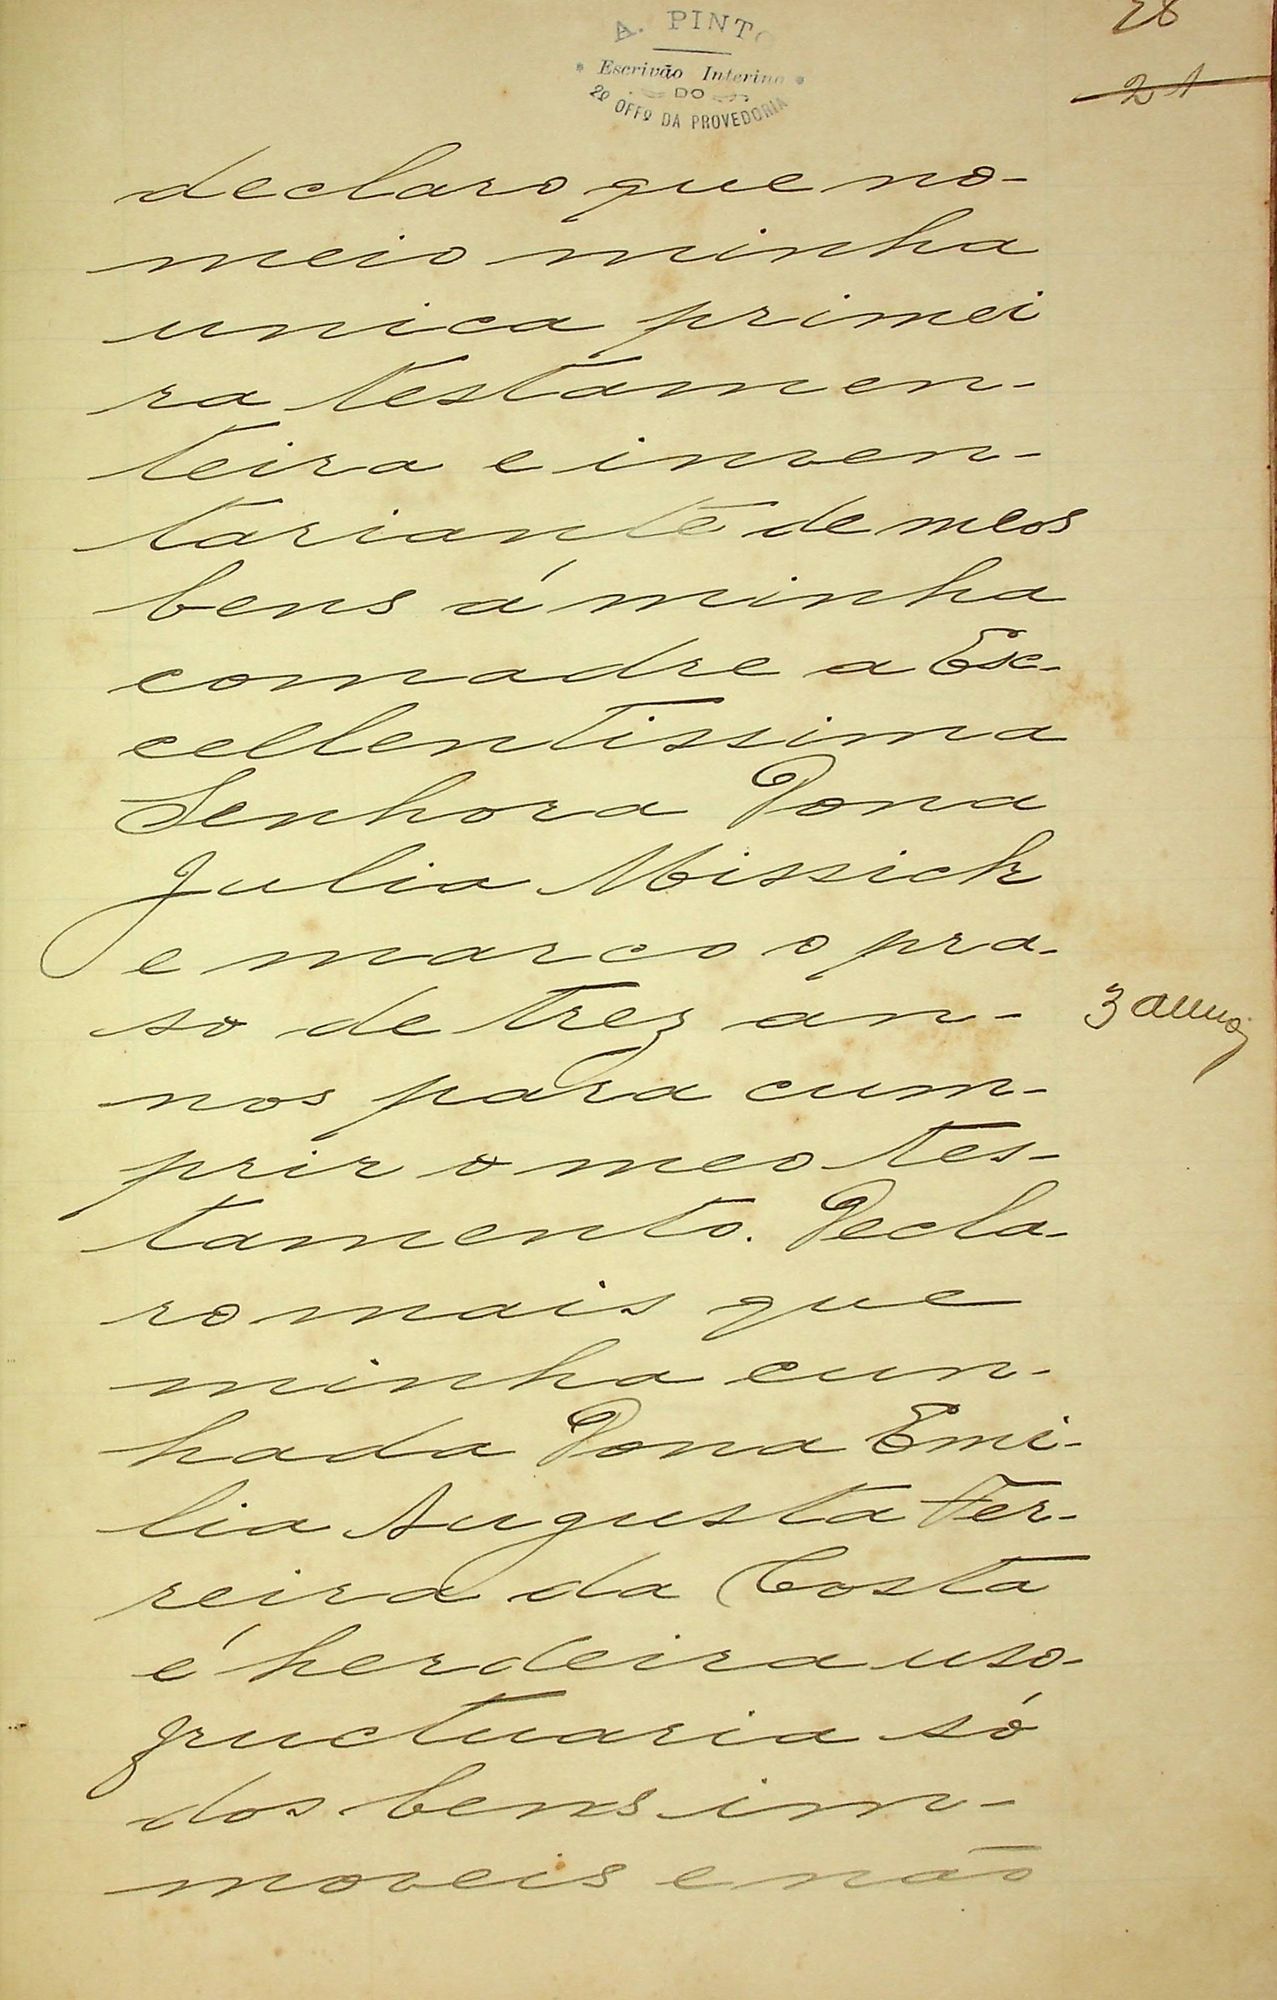 A. PINTO
Escrivão Interino
DO
2º OFFº DA PROVEDORIA
21
declaro que no-
meio minha
unica primei
ra testamen-
teira e inven-
tariante de meos
bens á minha
comadre a Exc-
cellentissima
Senhora Dona
Julia Missick
e marco o pra-
so de trez an-
3 annos
nos para cum-
prir o meo tes-
tamento. Decla-
ro mais que
minha cun-
hada Dona Emi-
lia Augusta Fer-
reira da Costa
é herdeira uso-
fructuaria só
dos bens im-
moveis e não